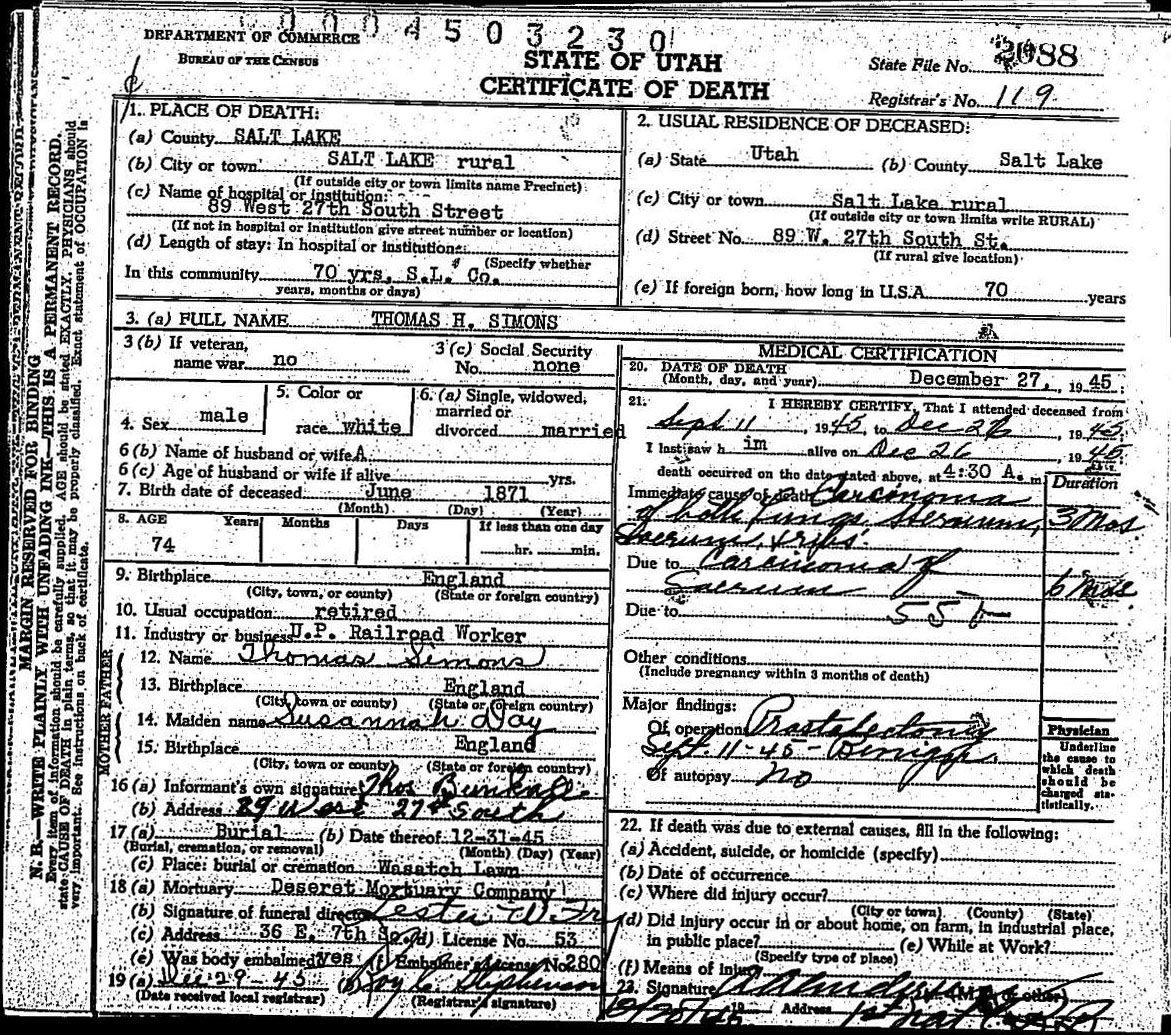 0004503230
DEPARTMENT OF COMMERCE
BUREAU OF THE CENSUS
STATE OF UTAH
CERTIFICATE OF DEATH
State File No. 2088
Registrar's No. 119
MARGIN RESERVED FOR BINDING
N. B.—WRITE PLAINLY WITH UNFADING INK—THIS IS A PERMANENT RECORD.
Every item of information should be carefully supplied. AGE should be stated EXACTLY. PHYSICIANS should
state CAUSE OF DEATH in plain terms, so that it may be properly classified. Exact statement of OCCUPATION is
very important. See instructions on back of certificate.
1. PLACE OF DEATH:
(a) County SALT LAKE
(b) City or town SALT LAKE rural
(If outside city or town limits name Precinct)
(c) Name of hospital or institution:
89 West 27th South Street
(If not in hospital or institution give street number or location)
(d) Length of stay: In hospital or institution:
(Specify whether
In this community 70 yrs, S.L. Co.
years, months or days)
2. USUAL RESIDENCE OF DECEASED:
(a) State Utah (b) County Salt Lake
(c) City or town Salt Lake rural
(If outside city or town limits write RURAL)
(d) Street No. 89 W. 27th South St.
(If rural give location)
(e) If foreign born, how long in U.S.A. 70 years
3. (a) FULL NAME THOMAS H. SIMONS
3 (b) If veteran,
name war no
3 (c) Social Security
No. none
4. Sex male
5. Color or
race white
6. (a) Single, widowed,
married or
divorced married
6 (b) Name of husband or wife A.
6 (c) Age of husband or wife if alive yrs.
7. Birth date of deceased June 1871
(Month) (Day) (Year)
8. AGE Years Months Days If less than one day
74 hr. min.
9. Birthplace England
(City, town, or county) (State or foreign country)
10. Usual occupation retired
11. Industry or business U.P. Railroad Worker
FATHER
12. Name Thomas Simons
13. Birthplace England
(City, town or county) (State or foreign country)
MOTHER
14. Maiden name Susannah Day
15. Birthplace England
(City, town or county) (State or foreign country)
16 (a) Informant's own signature Thos
(b) Address 89 West 27th South
17 (a) Burial (b) Date thereof 12-31-45
(Burial, cremation, or removal) (Month) (Day) (Year)
(c) Place: burial or cremation Wasatch Lawn
18 (a) Mortuary Deseret Mortuary Company
(b) Signature of funeral director Lester
(c) Address 36 E. 7th So. (d) License No. 53
(e) Was body embalmed? yes (f) Embalmer's License No. 280
19 (a) Dec 29-45 (b) Roy C. Stephenson
(Date received local registrar) (Registrar's signature)
MEDICAL CERTIFICATION
20. DATE OF DEATH
(Month, day, and year) December 27, 1945
21. I HEREBY CERTIFY, That I attended deceased from
Sept 11, 1945, to Dec 26, 1945.
I last saw h im alive on Dec 26, 1945.
death occurred on the date stated above, at 4:30 A. m
Duration
Immediate cause of death Carcinoma
of both lungs, Sternum, 3 Mos
Sacrum & ribs.
Due to Carcinoma of
Sacrum 6 Mos.
Due to 55
Other conditions
(Include pregnancy within 3 months of death)
Major findings:
Of operations Prostatectomy
Sept. 11-45 - Benign
Of autopsy no
Physician
Underline
the cause to
which death
should be
charged sta-
tistically.
22. If death was due to external causes, fill in the following:
(a) Accident, suicide, or homicide (specify)
(b) Date of occurrence
(c) Where did injury occur?
(City or town) (County) (State)
(d) Did injury occur in or about home, on farm, in industrial place,
in public place? (e) While at Work?
(Specify type of place)
(f) Means of injury
23. Signature (M.D. or other)
Address